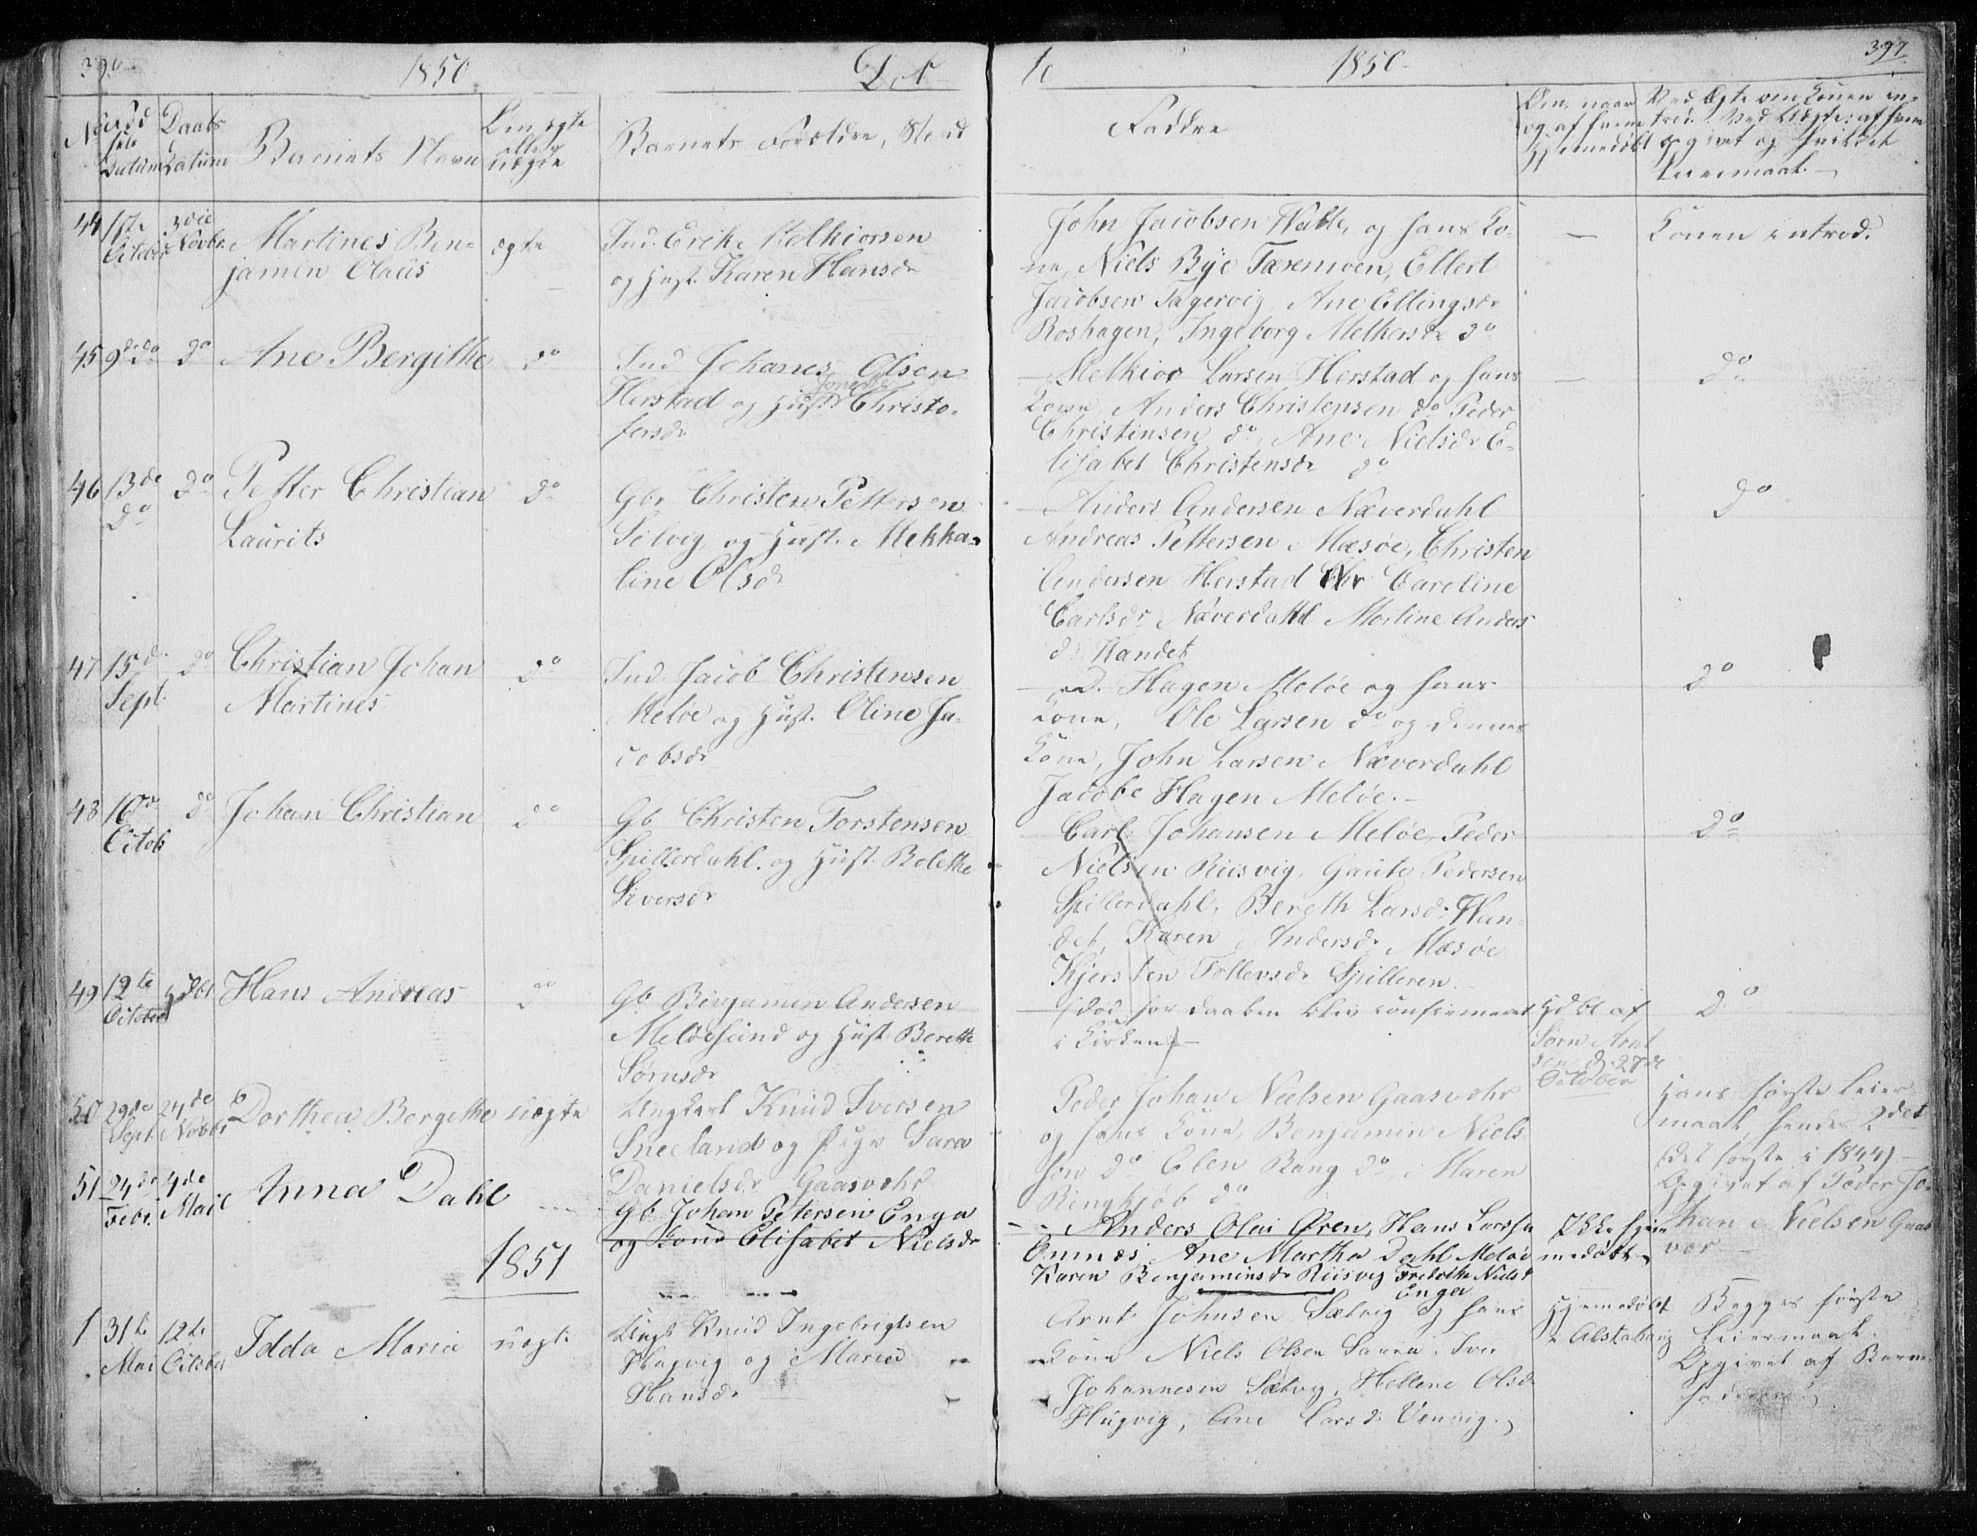 396 1850 Døb
No Fødsels Datum Daabs Datum Barnets Navn Om ægte eller uægte Barnets Forældre, Stand
44 1ste October 3die Novbr. Martines Ben-
jamin Olaus ægte
Ind. Erik Melkiorsen
og Hust. Karen Hansdr
45 9de do do Ane Bergithe do
Ind Johanes Olsen
Herstad og Hustr Christo-
fersdr
46 13de do do Petter Christian
Laurits do
Gbr Christen Pettersen
Selvig og Hust. Mekka-
line Olsdr
47 15de Sept. do Christian Johan
Martines do
Ind. Jacob Christensen
Meløe og Hust. Oline Ja-
cobsdr
48 10de Octob do Johan Christian do
Gb Christen Torstensen
Spillerdahl. og Hust. Bolethe
Siversdr
49 12te October Hans Andreas do
Gb. Benjamin Andersen
Meløesund og Hust Bereth
Sørnsdr
50 29de Sept. 24de Novbr Dorthea Bergethe uægte
Ungkarl Knud Iversen
Sneeland og Pige Sara
Danielsdr Gaasvær
51 24de Febr. 4de Mai Anna Dahl
Gb. Johan Petersen Enga
og Kone Elisabet Nielsdr
1851
1 31te Mai 12te Octobr Idda Maria uægte
Ungk Knud Ingebrigtsen
Hugvig og Maria
Hansdr
te 1850 397
Faddre
Om, naar og af hvem hjemmedøbt
Ved Ægte om Konen in-
trod. Ved Uægte: af hvem
opgivet og hvilket
Leiermaal.
John Jacobsen Valle, og hans Ko-
ne, Niels Bye Tærenvoen, Ellert
Jacobsen Fagervig, Ane Ellingsdr
Roshagen, Ingeborg Melkersdr do
Konen introd.
Melkior Larsen Herstad og hans
Kone, Anders Christensen do Peder
Christinsen do, Ane Nielsdr E-
lisabet Christensdr do
do
Anders Andersen Næverdahl
Andreas Pettersen Mæsøe, Christen
Andersen Herstad Caroline
Carlsdr Næverdahl Martine Anders
dr Handet
do
Hagen Meløe og hans
Kone, Ole Larsen do og dennes
Kone, John Larsen Næverdahl
Jacobe Hagen Meløe.
do
Carl Johansen Meløe, Peder
Nielsen Riisvig, Gaute Pedersen
Spillerdahl, Bereth Larsdr Han-
det, Karen Andersdr Mæsøe
Kjersten Tollevsdr Spilleren
do
(død før Daaben blev confirmeret
i Kirken)
Hdbt af
Sørn Arnt
sen d. 27de
October
do
Peder Johan Nielsen Gaasvær
og hans Kone, Benjamin Niels
sen do Eben Rang do, Maren
Ringkjøb do
Hans første Leier
maal, hendes 2det
(det første i 1844)
Opgivet af Peder Jo-
han Nielsen Gaas
vær
Anders Olai Øren, Hans Larsen
Ommæs, Ane Martha Dahl Meløe
Karen Benjaminsdr Riisvig Fredrikke Nielsd
Enga
Ikke hjem
medøbt
Arnt Johnsen Sætvig og hans
Kone Niels Olsen Saura, Iver
Johannesen Sætvig, Hellene Olsdr
Hugvig, Ane Larsdr Vennig.
Hjemmedøbt
i Alstahaug
Begges første
Leiermaal.
Opgivet af Barne-
faderen